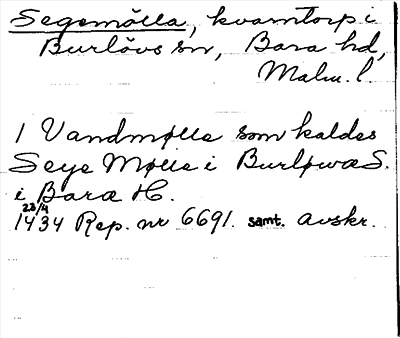 Segemölla, kvarntorp i
Burlövs sn, Bara hd,
Malm. l.
1 Vandmølle som kaldes
Seye Mølle i Burløwæ S.
i Bara H.
23/4
1434 Rep. nr 6691. samt. avskr.